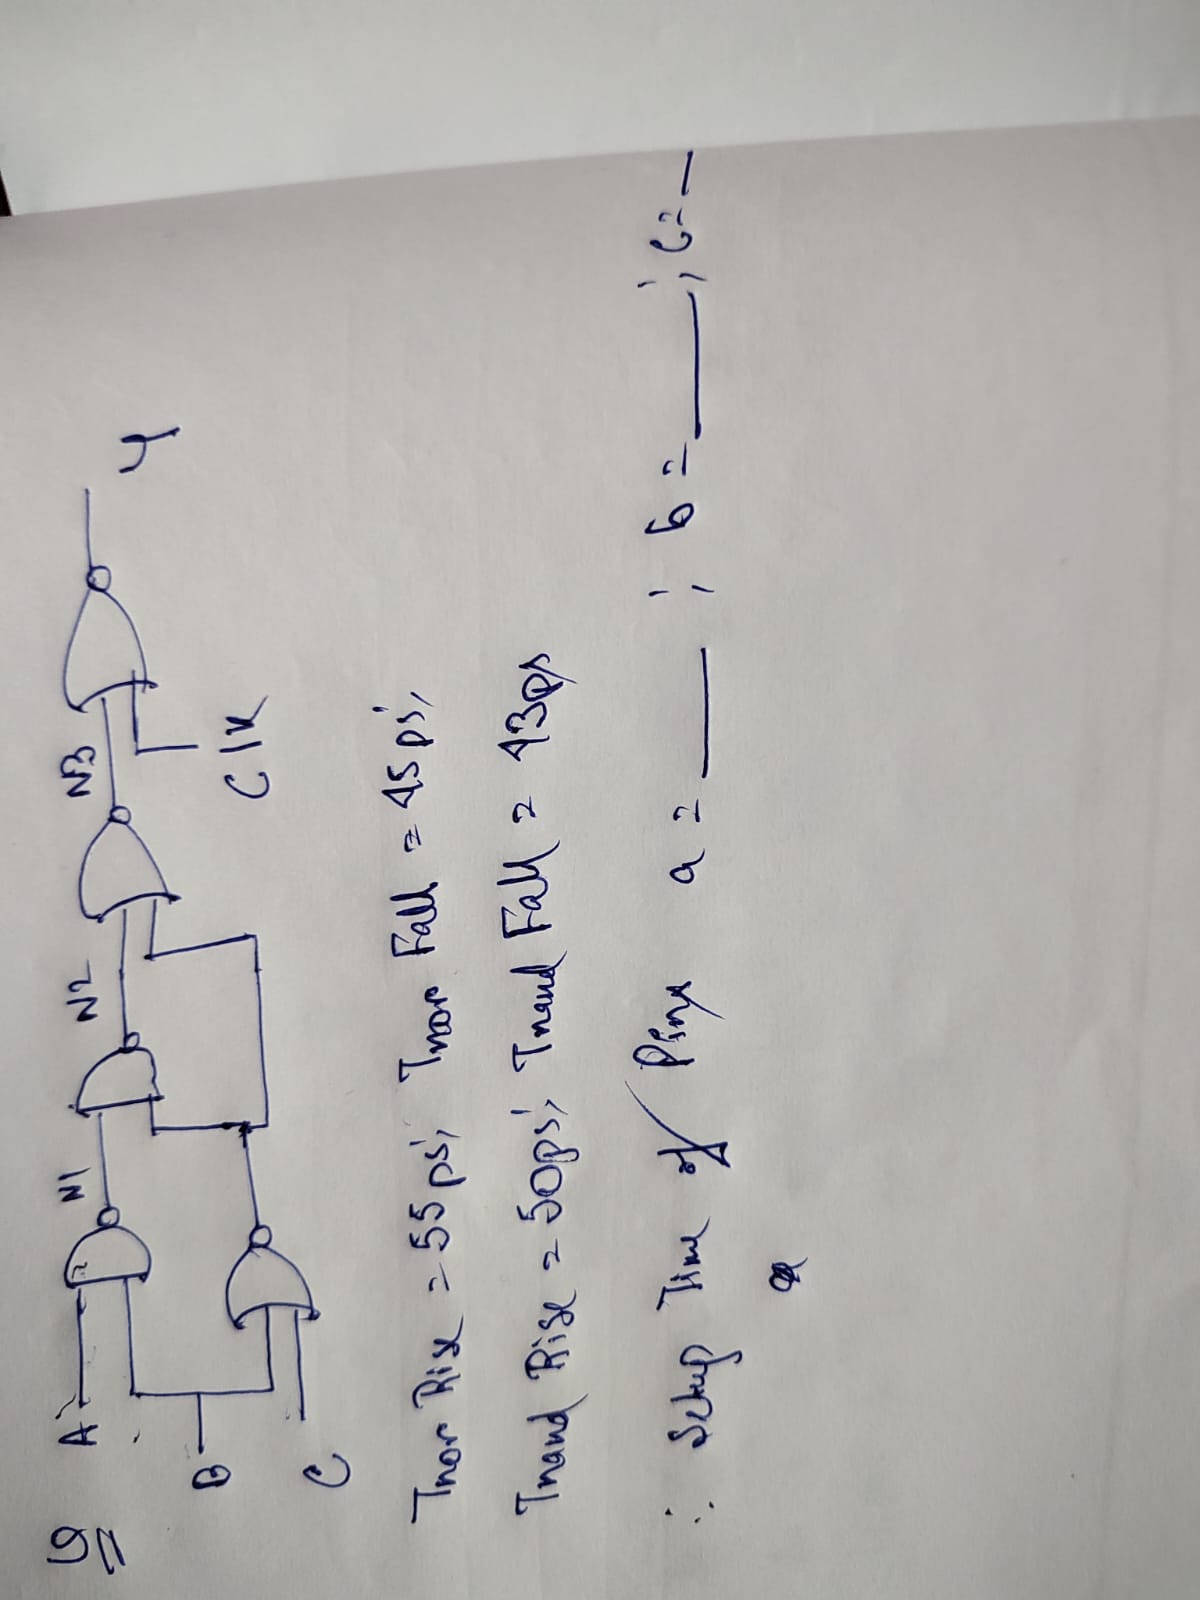 Q
A N1 N2 N3 Y
B
C
Clk
Tnor Rise = 55ps; Tnor Fall = 45ps;
Tnand Rise = 50ps; Tnand Fall = 43ps
∴ Setup Time of Pins a = ____ ; b = ____ ; c = __